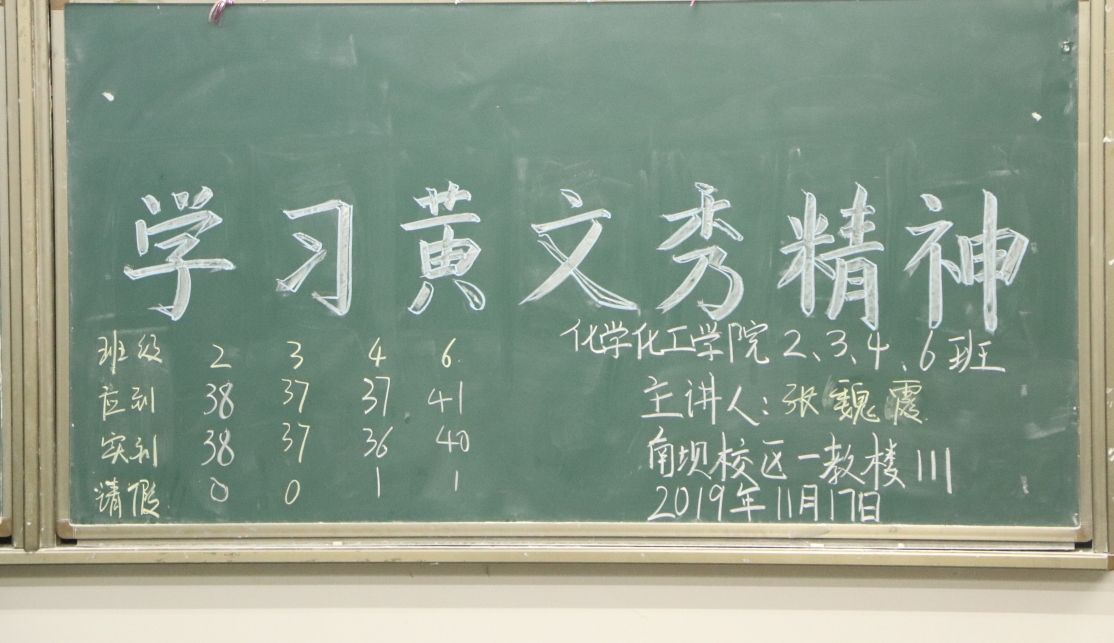 学习黄文秀精神
班级 2 3 4 6
应到 38 37 37 41
实到 38 37 36 40
请假 0 0 1 1
化学化工学院2、3、4、6班
主讲人:张魏霞
南坝校区一教楼111
2019年11月17日